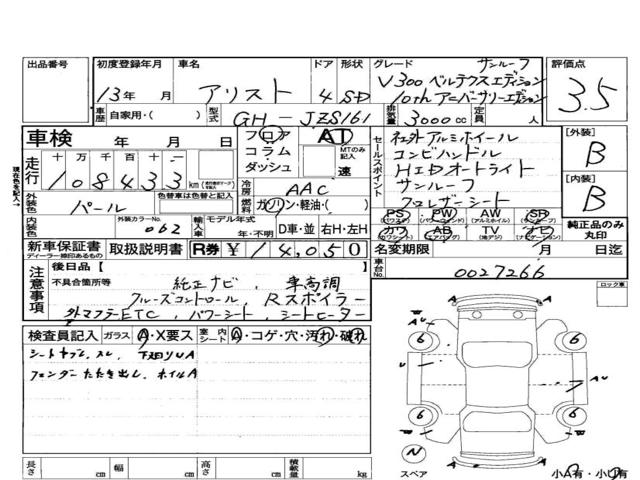 出品番号
初度登録年月
13年 月
車名
アリスト
ドア
4
形状
SD
グレード
サンルーフ
V300 ベルテクスエディション
10th アニバーサリーエディション
評価点
3.5
車歴
自家用・( )
型式
GH-JZS161
排気量
3000cc
定員
人
車検 年 月 日
フロア
コラム
ダッシュ
AT
MTのみ記入
速
セールスポイント
社外アルミホイール
コンビハンドル
HIDオートライト
サンルーフ
クロレザーシート
[外装]
B
[内装]
B
現在色を記入→
走行
十 万 千 百 十 一
108433 km
冷房
AAC
外装色
パール
色替車は色替と記入
燃料
ガソリン・軽油・( )
PS PW AW SR
カワ AB TV ナビ
純正品のみ丸印
内装色
外装カラーNo.
062
輸入車
モデル年式
年・不明
D車・並
右H・左H
新車保証書
ディーラー捺印あるもの
取扱説明書
R券 ¥14,050
名変期限 月 日迄
車台No.
0027266
注意事項
後日品[ ]
不具合箇所等
純正ナビ、車高調
クルーズコントロール、Rスポイラー
外マフラーETC、パワーシート、シートヒーター
ロック車
検査員記入
ガラス
A・X要ス
室内
シート
A・コゲ・穴・汚れ・破れ
シートヤブレ、スレ、下廻りUA
フェンダーたたき出し、ホイルA
U
W
6
6
6
6
AU
U
A
N
スペア
小A有・小U有
長さ cm
幅 cm
高さ cm
積載量 kg